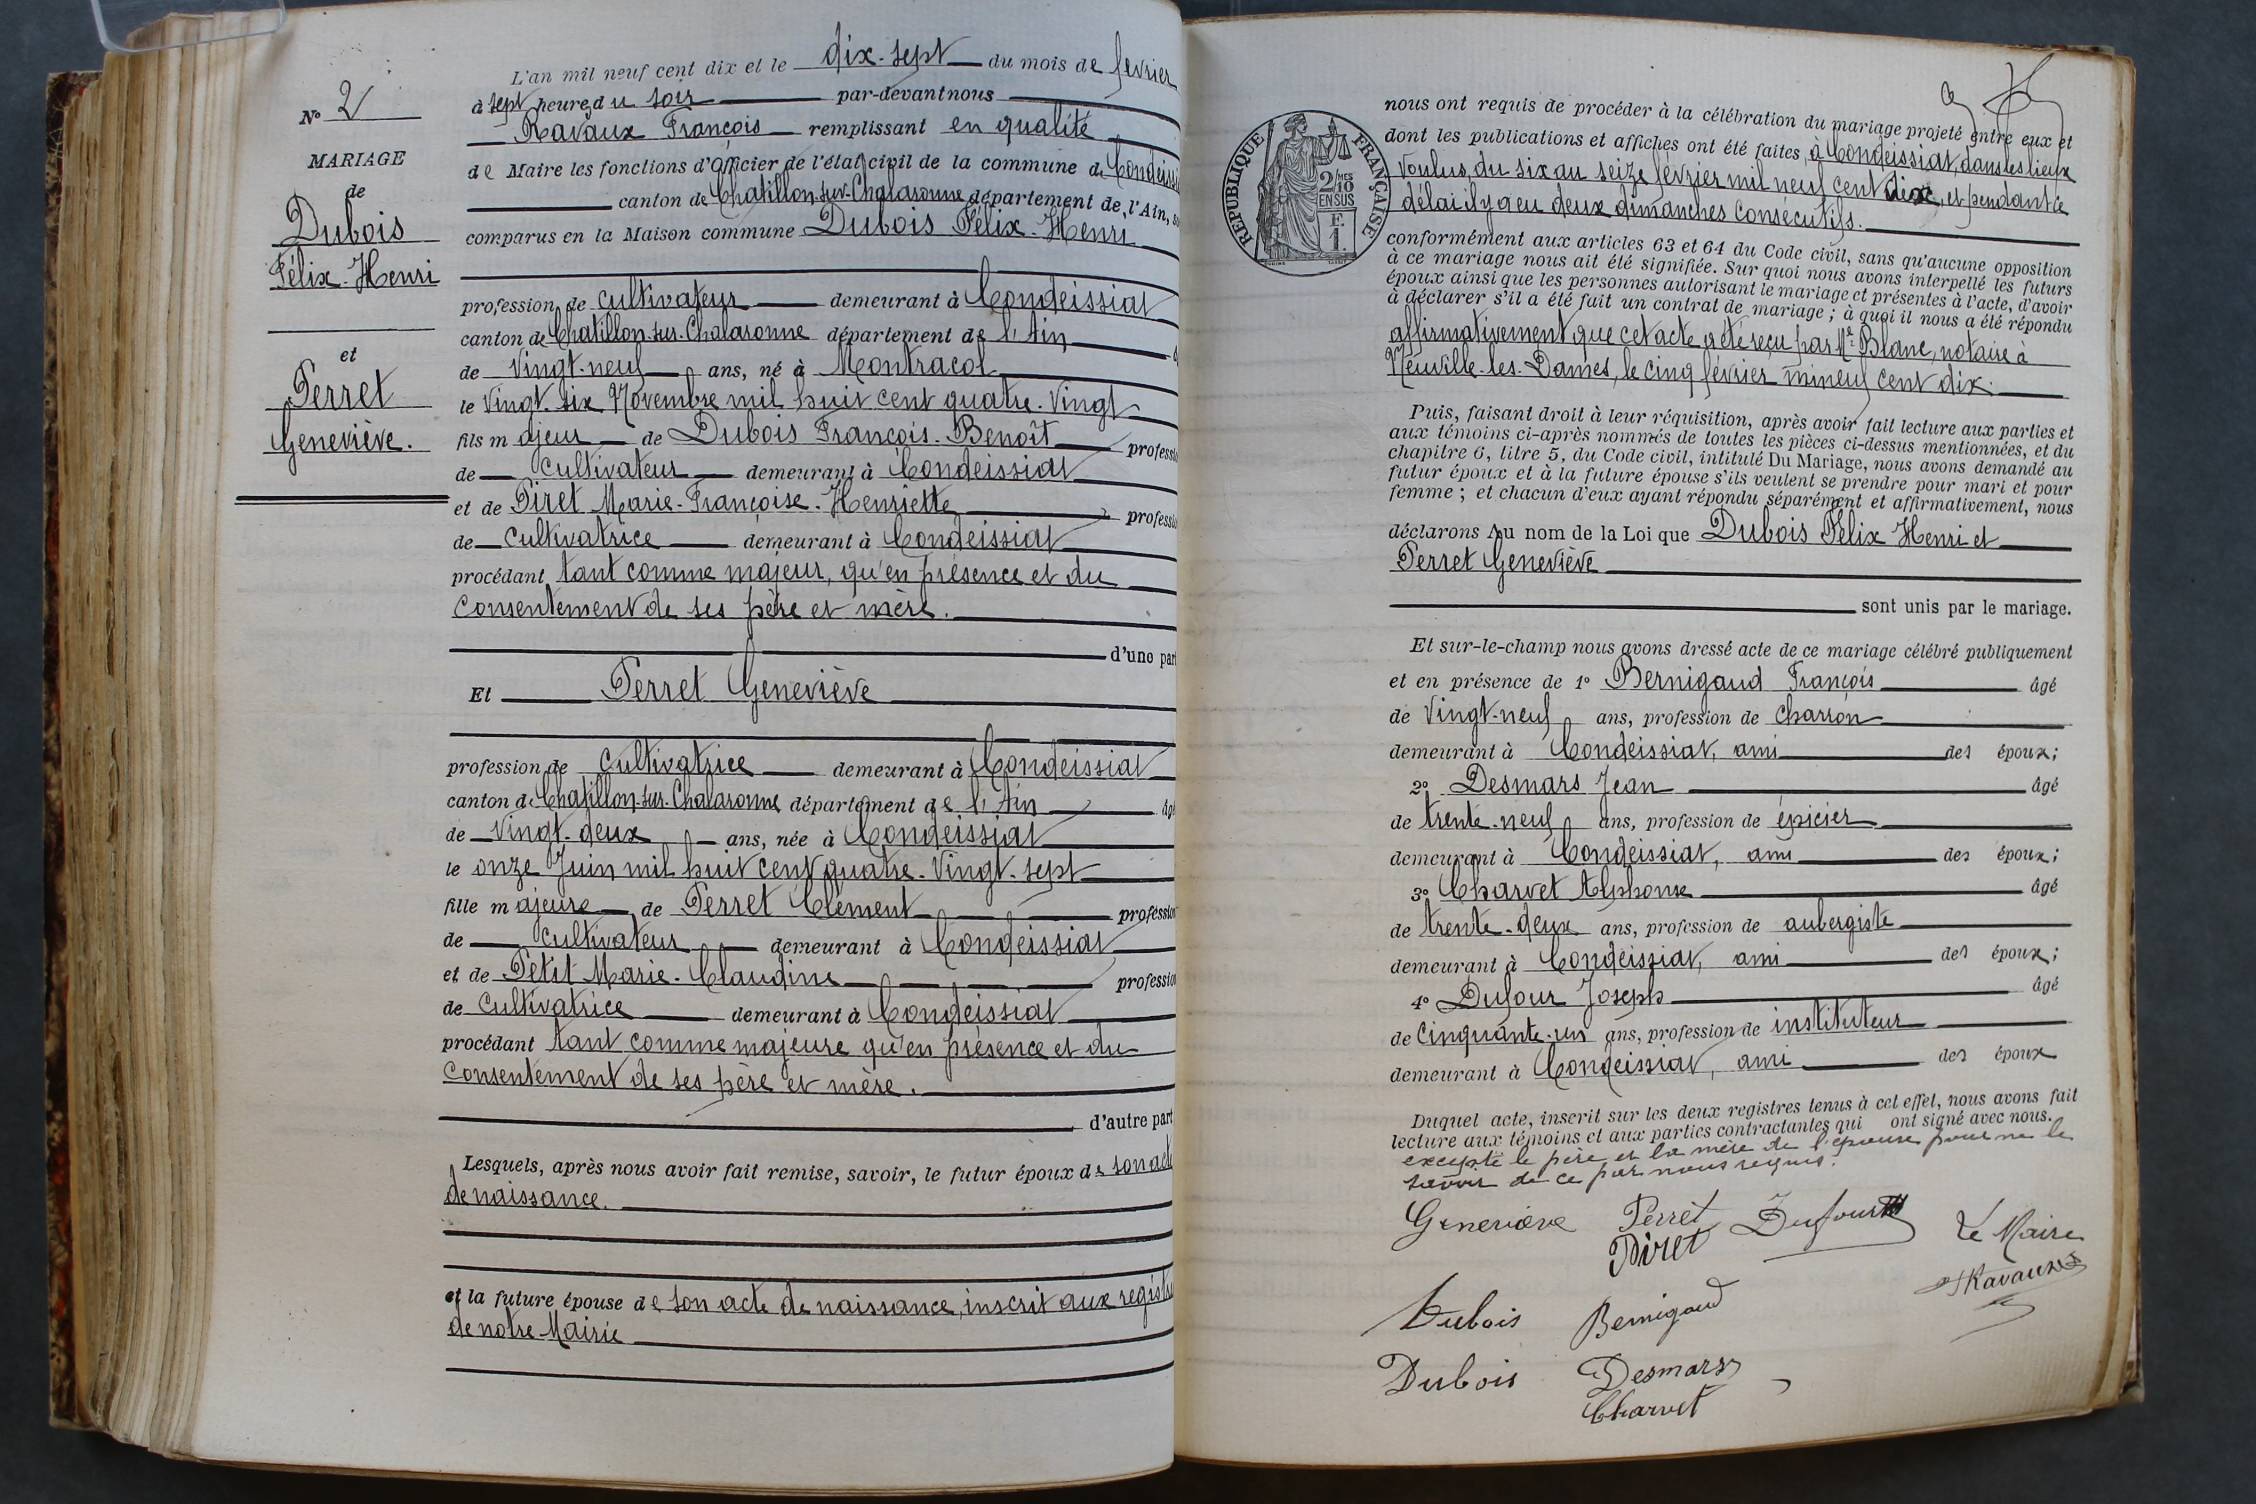 L'an mil neuf cent dix et le dix-sept du mois de février
N° 2
à sept heures du soir par-devant nous
Ravaux François remplissant en qualité
MARIAGE
de Maire les fonctions d'Officier de l'état civil de la commune de Condeissi
de
canton de Chatillon-sur-Chalaronne département de l'Ain, s
Dubois
comparus en la Maison commune Dubois Félix-Henri
Félix-Henri
profession de cultivateur demeurant à Condeissiat
canton de Chatillon-sur-Chalaronne département de l'Ain
et
de vingt-neuf ans, né à Montracol
Perret
le vingt-six Novembre mil huit cent quatre-vingt
Geneviève.
fils majeur de Dubois François-Benoît professi
de cultivateur demeurant à Condeissiat
et de Piret Marie-Françoise-Henriette professi
de cultivatrice demeurant à Condeissiat
procédant tant comme majeur, qu'en présence et du
consentement de ses père et mère.
d'une part
Et Perret Geneviève
profession de cultivatrice demeurant à Condeissiat
canton de Chatillon-sur-Chalaronne département de l'Ain âgé
de vingt-deux ans, née à Condeissiat
le onze Juin mil huit cent quatre-vingt-sept
fille majeure de Perret Clément profession
de cultivateur demeurant à Condeissiat
et de Petit Marie-Claudine profession
de cultivatrice demeurant à Condeissiat
procédant tant comme majeure qu'en présence et du
consentement de ses père et mère.
d'autre part
Lesquels, après nous avoir fait remise, savoir, le futur époux de son acte
de naissance.
et la future épouse de son acte de naissance, inscrit aux registre
de notre Mairie
RÉPUBLIQUE FRANÇAISE
2/MES
10
EN SUS
F.
1.
nous ont requis de procéder à la célébration du mariage projeté entre eux et
dont les publications et affiches ont été faites, à Condeissiat, dans les lieux
voulus, du six au seize février mil neuf cent dix, et pendant ce
délai il y a eu deux dimanches consécutifs.
conformément aux articles 63 et 64 du Code civil, sans qu'aucune opposition
à ce mariage nous ait été signifiée. Sur quoi nous avons interpellé les futurs
époux ainsi que les personnes autorisant le mariage et présentes à l'acte, d'avoir
à déclarer s'il a été fait un contrat de mariage ; à quoi il nous a été répondu
affirmativement que cet acte a été reçu par Me Blanc, notaire à
Neuville-les-Dames, le cinq février mineuf cent dix.
Puis, faisant droit à leur réquisition, après avoir fait lecture aux parties et
aux témoins ci-après nommés de toutes les pièces ci-dessus mentionnées, et du
chapitre 6, litre 5, du Code civil, intitulé Du Mariage, nous avons demandé au
futur époux et à la future épouse s'ils veulent se prendre pour mari et pour
femme ; et chacun d'eux ayant répondu séparément et affirmativement, nous
déclarons Au nom de la Loi que Dubois Félix Henri et
Perret Geneviève
sont unis par le mariage.
Et sur-le-champ nous avons dressé acte de ce mariage célébré publiquement
et en présence de 1° Bernigaud François âgé
de vingt-neuf ans, profession de charron
demeurant à Condeissiat, ami des époux;
2° Desmars Jean âgé
de trente-neuf ans, profession de épicier
demeurant à Condeissiat, ami des époux;
3° Charvet Alphonse âgé
de trente-deux ans, profession de aubergiste
demeurant à Condeissiat, ami des époux;
4° Dufour Joseph âgé
de cinquante-un ans, profession de instituteur
demeurant à Condeissiat, ami des époux
Duquel acte, inscrit sur les deux registres tenus à cet effet, nous avons fait
lecture aux témoins et aux parties contractantes qui ont signé avec nous.
excepté le père et la mère de l'épouse pour ne le
savoir de ce par nous requis.
Geneviève Perret Dufour Le Maire
Piret
Ravaux
Dubois Bernigaud
Dubois Desmars
Charvet